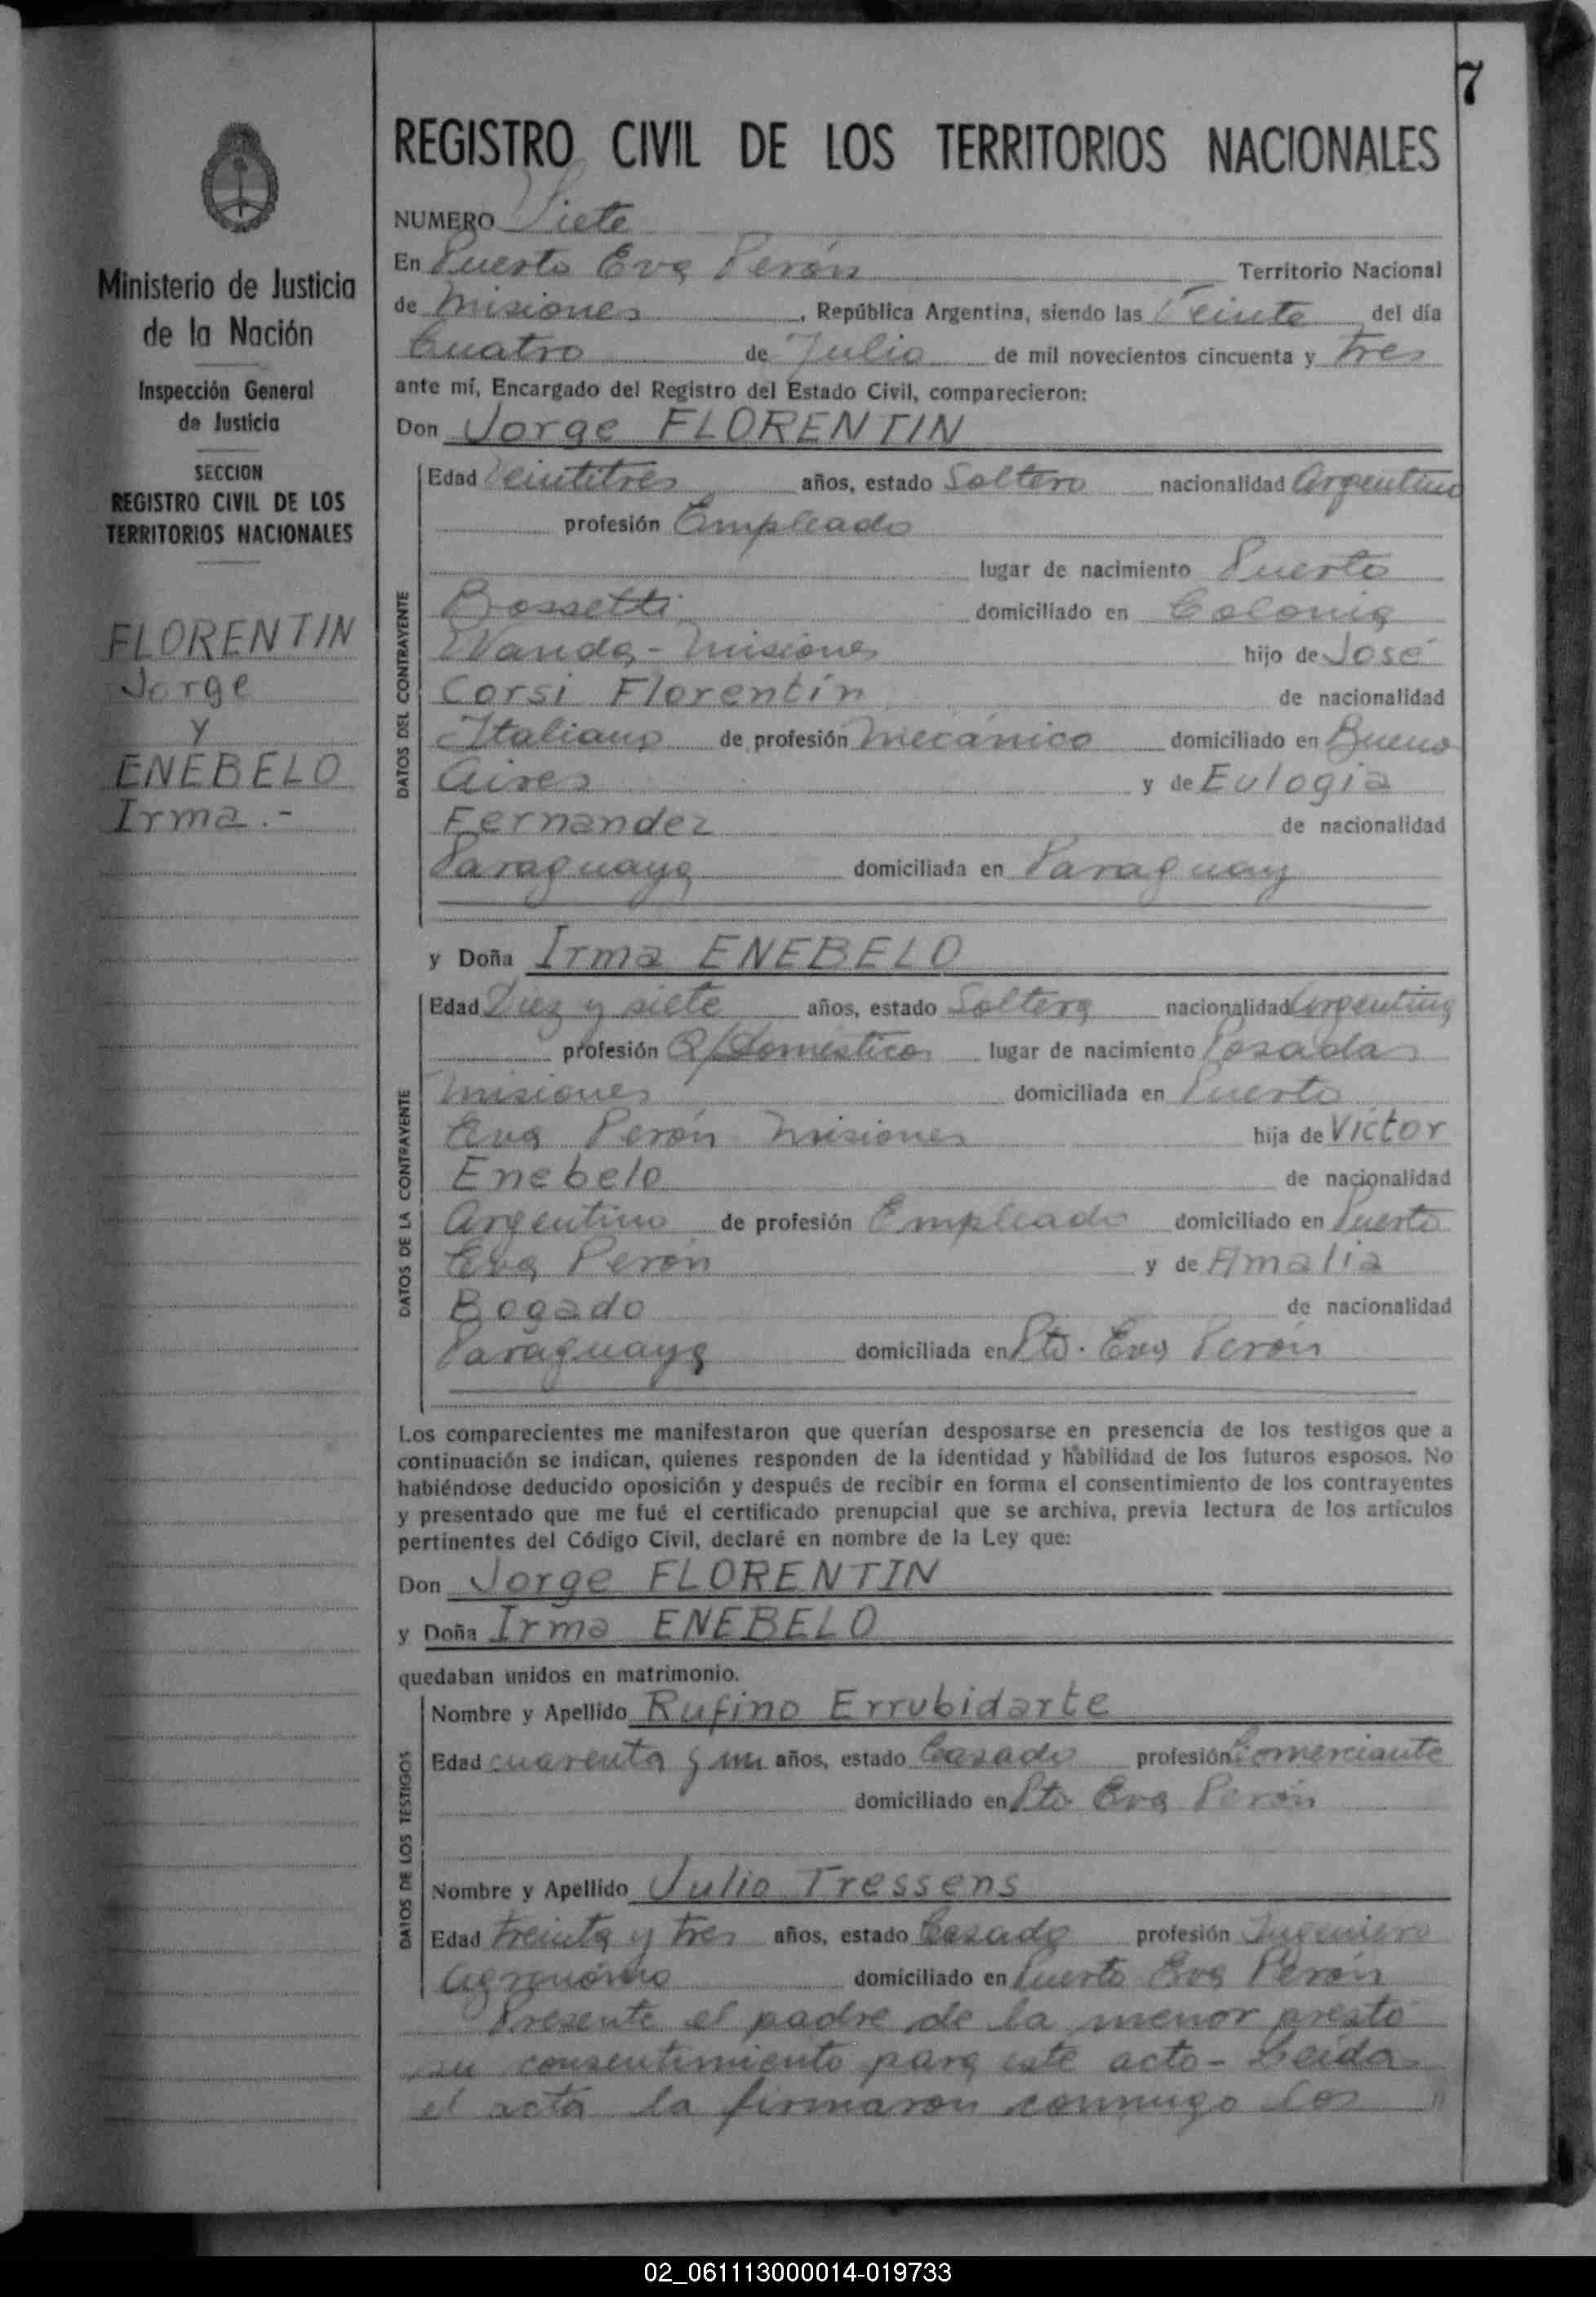 7
Ministerio de Justicia
de la Nación
Inspección General
de Justicia
SECCION
REGISTRO CIVIL DE LOS
TERRITORIOS NACIONALES
FLORENTIN
Jorge
y
ENEBELO
Irma.-
REGISTRO CIVIL DE LOS TERRITORIOS NACIONALES
NUMERO Siete
En Puerto Eva Perón Territorio Nacional
de Misiones, República Argentina, siendo las Veinte del día
Cuatro de Julio de mil novecientos cincuenta y tres
ante mí, Encargado del Registro del Estado Civil, comparecieron:
Don Jorge FLORENTIN
DATOS DEL CONTRAYENTE
Edad Veintitres años, estado Soltero nacionalidad Argentino
profesión Empleado
lugar de nacimiento Puerto
Bossetti domiciliado en Colonia
Wanda - Misiones hijo de José
Corsi Florentín de nacionalidad
Italiano de profesión Mecánico domiciliado en Bueno
Aires y de Eulogia
Fernandez de nacionalidad
Paraguaya domiciliada en Paraguay
y Doña Irma ENEBELO
DATOS DE LA CONTRAYENTE
Edad Diez y siete años, estado Soltera nacionalidad Argentina
profesión Q/Domésticos lugar de nacimiento Posadas
Misiones domiciliada en Puerto
Eva Perón Misiones hija de Victor
Enebelo de nacionalidad
Argentino de profesión Empleado domiciliado en Puerto
Eva Perón y de Amalia
Bogado de nacionalidad
Paraguaya domiciliada en Pto. Eva Perón
Los comparecientes me manifestaron que querían desposarse en presencia de los testigos que a
continuación se indican, quienes responden de la identidad y habilidad de los futuros esposos. No
habiéndose deducido oposición y después de recibir en forma el consentimiento de los contrayentes
y presentado que me fué el certificado prenupcial que se archiva, previa lectura de los artículos
pertinentes del Código Civil, declaré en nombre de la Ley que:
Don Jorge FLORENTIN
y Doña Irma ENEBELO
quedaban unidos en matrimonio.
DATOS DE LOS TESTIGOS
Nombre y Apellido Rufino Errubidarte
Edad cuarenta y un años, estado Casado profesión Comerciante
domiciliado en Pto Eva Perón
Nombre y Apellido Julio Tressens
Edad treinta y tres años, estado Casado profesión Ingeniero
Agronómo domiciliado en Puerto Eva Perón
Presente el padre de la menor prestó
su consentimiento para este acto - Leída
el acta la firmaron conmigo los "
02_061113000014-019733